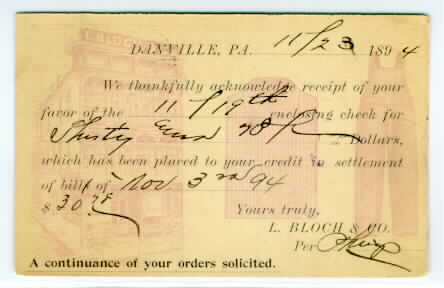 DANVILLE, PA. 11/23 1894
We thankfully acknowledge receipt of your
favor of the 11/19th enclosing check for
Thirty Dollars,
which has been placed to your credit in settlement
of bill of Nov 3rd 94
$30.78 Yours truly,
L. BLOCH & CO.
Per
A continuance of your orders solicited.